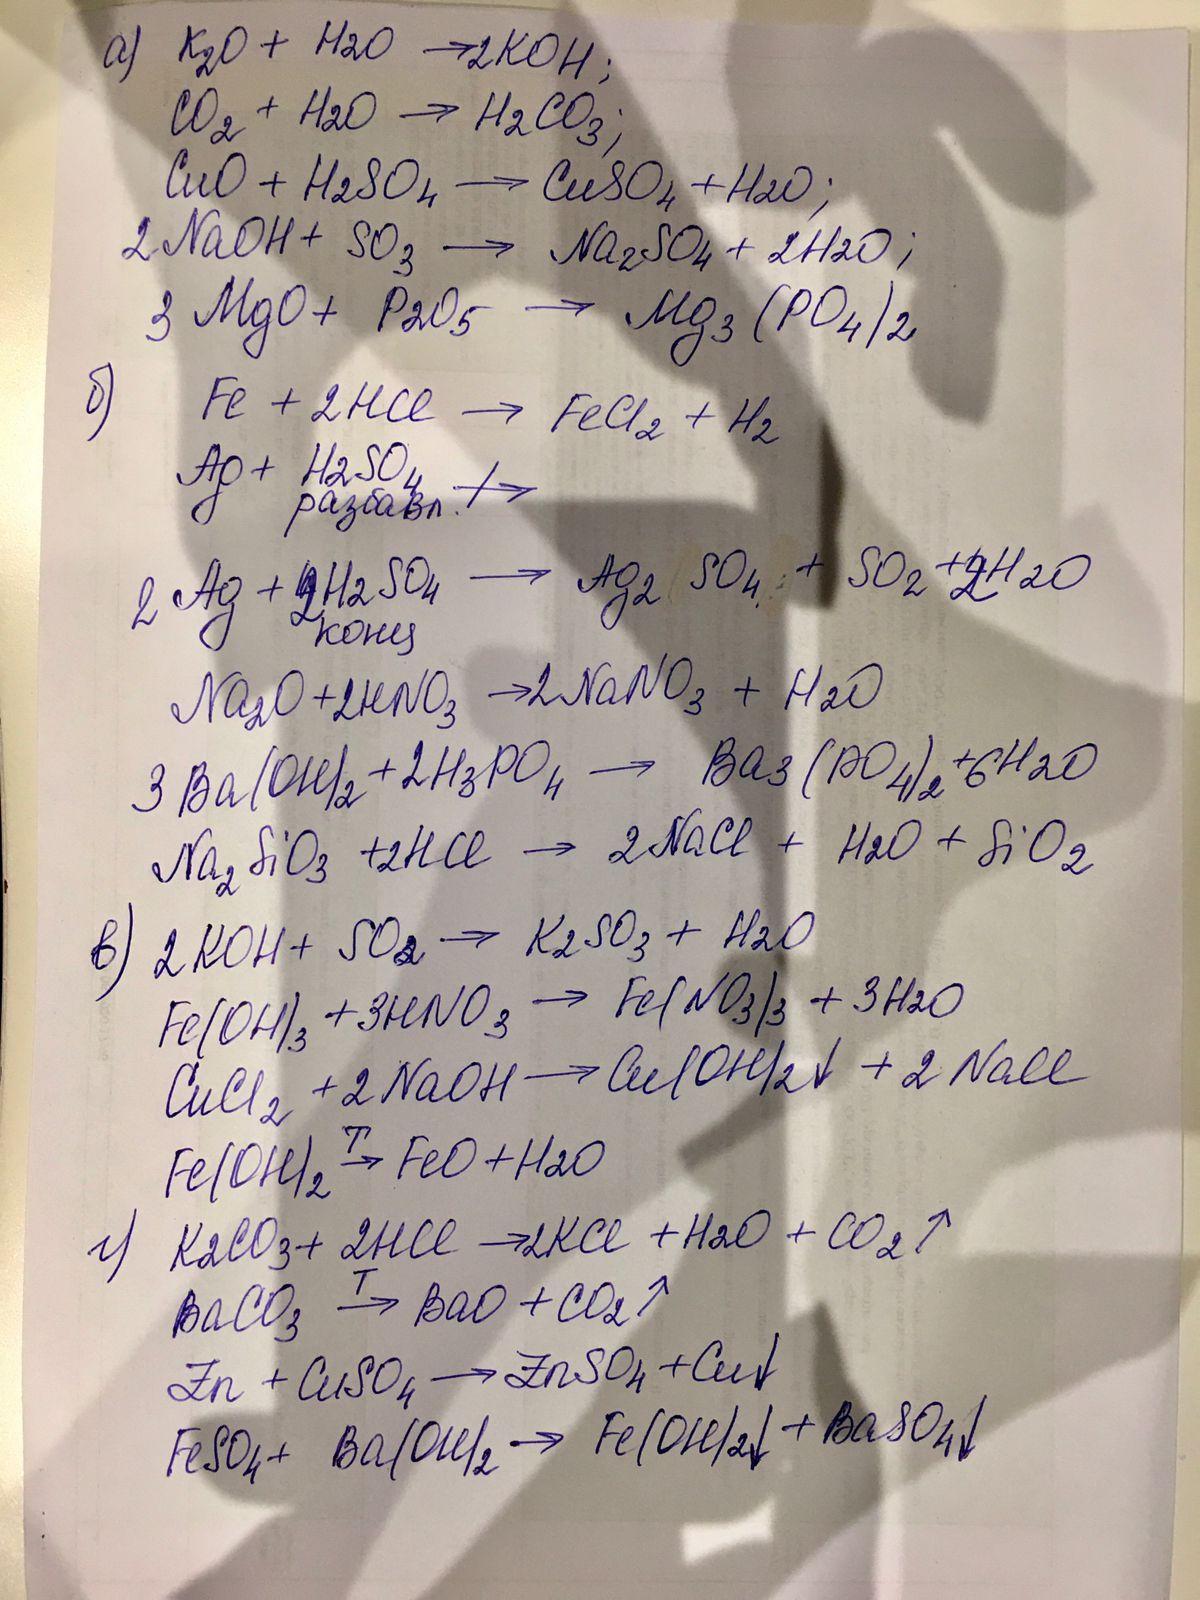 а) K2O + H2O → 2KOH;
CO2 + H2O → H2CO3;
CuO + H2SO4 → CuSO4 + H2O;
2NaOH + SO3 → Na2SO4 + 2H2O;
3 MgO + P2O5 → Mg3(PO4)2
б) Fe + 2HCl → FeCl2 + H2
Ag + H2SO4 ↛
разбавл.
2 Ag + 2H2SO4 → Ag2SO4 + SO2 + 2H2O
конц
Na2O + 2HNO3 → 2NaNO3 + H2O
3 Ba(OH)2 + 2H3PO4 → Ba3(PO4)2 + 6H2O
Na2SiO3 + 2HCl → 2NaCl + H2O + SiO2
в) 2KOH + SO2 → K2SO3 + H2O
Fe(OH)3 + 3HNO3 → Fe(NO3)3 + 3H2O
CuCl2 + 2NaOH → Cu(OH)2↓ + 2 NaCl
T
Fe(OH)2 → FeO + H2O
г) K2CO3 + 2HCl → 2KCl + H2O + CO2↑
T
BaCO3 → BaO + CO2↑
Zn + CuSO4 → ZnSO4 + Cu↓
FeSO4 + Ba(OH)2 → Fe(OH)2↓ + BaSO4↓